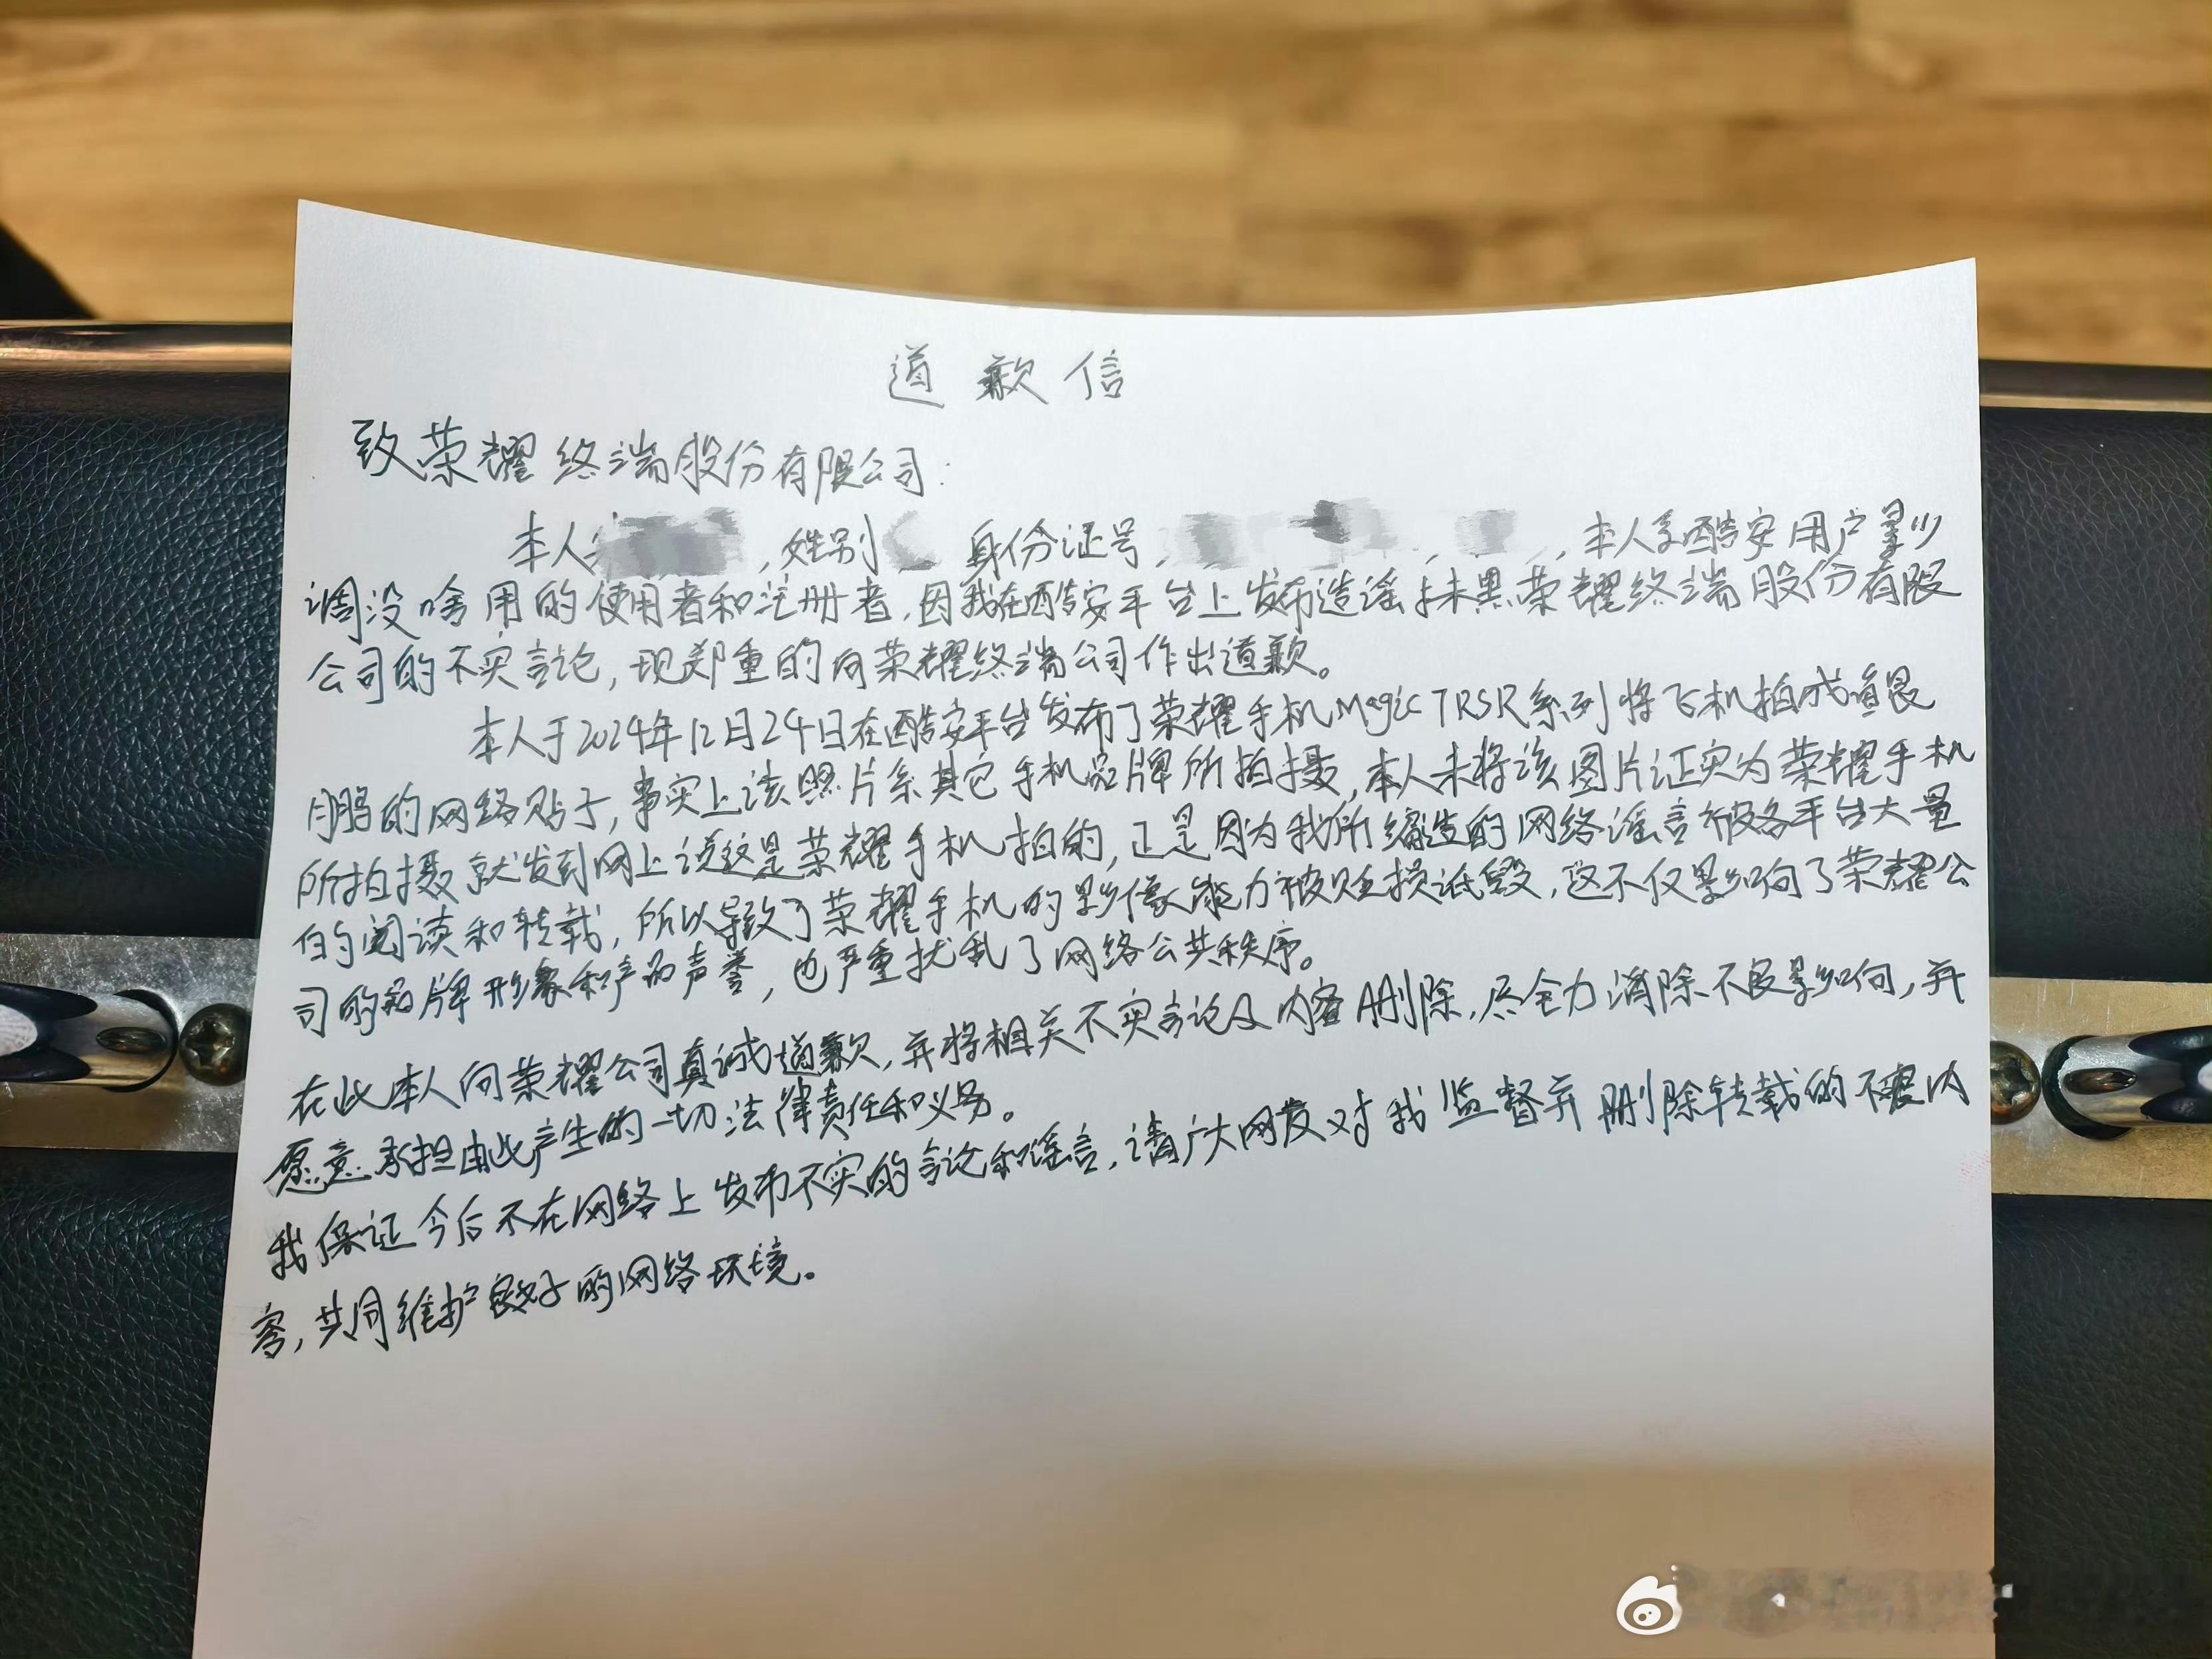 道歉信
致荣耀终端股份有限公司：
本人，姓别 身份证号，，，本人系酷安用户影调没啥用的使用者和注册者，因我在酷安平台上发布造谣抹黑荣耀终端股份有限
公司的不实言论，现郑重的向荣耀终端公司作出道歉。
本人于2024年12月24日在酷安平台发布了荣耀手机Magic7RSR系列将飞机拍成
鹏的网络贴子，事实上该照片系其它手机品牌所拍摄，本人未将该图片证实为荣耀手机
所拍摄就发到网上说这是荣耀手机拍的，正是因为我所编造的网络谣言被各平台大量
的阅读和转载，所以导致了荣耀手机的影像能力被贬损诋毁，这不仅影响了荣耀公
司的品牌形象和产品声誉，也严重扰乱了网络公共秩序。
在此本人向荣耀公司真诚道歉，并将相关不实言论及内容删除，尽全力消除不良影响，并
愿意承担由此产生的一切法律责任和义务。
我保证今后不在网络上发布不实的言论和谣言，请广大网友对我监督并删除转载的不实内
容，共同维护良好的网络环境。